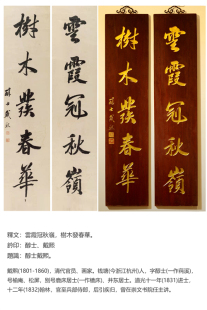 雲霞冠秋嶺
樹木發春華
醇士戴熙
雲霞冠秋嶺
樹木發春華
释文:雲霞冠秋嶺,樹木發春華。
鈐印:醇士、戴熙
題識:醇士戴熙。
戴熙(1801-1860),清代官员、画家。钱塘(今浙江杭州)人,字醇士(一作莼溪),
号榆庵、松屏,别号鹿床居士(一作樵床)、井东居士,道光十一年(1831)进士,
十二年(1832)翰林,官至兵部侍郎,后引疾归,曾在崇文书院任主讲。